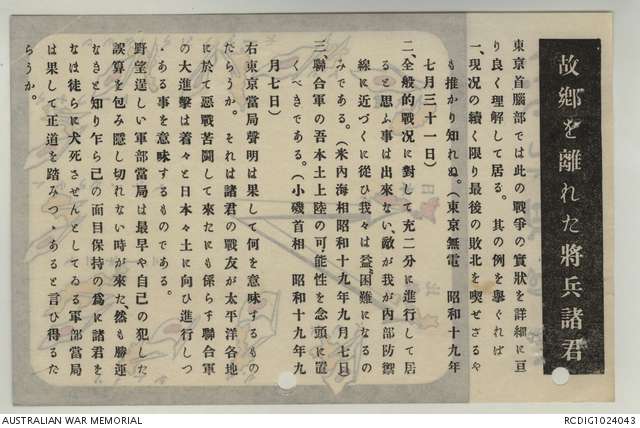 故鄕を離れた將兵諸君
東京首腦部では此の戰爭の實狀を詳細に亘
り良く理解して居る。其の例を擧ぐれば
一、現況の續く限り最後の敗北を喫せさるや
も推かり知れぬ。(東京無電 昭和十九年
七月三十一日)
二、全般的戰況に對して充二分に進行して居
ると思ふ事は出來ない、敵が我が內部防禦
線に近づくに從ひ我々は益〻困難になるの
みである。(米內海相昭和十九年九月七日)
三、聯合軍の吾本土上陸の可能性を念頭に置
くべきである。(小磯首相 昭和十九年九
月七日)
右東京當局聲明は果して何を意味するもの
だらうか。それは諸君の戰友が太平洋各地
に於て惡戰苦鬪して來たにも係らず聯合軍
の大進擊は着々と日本々土に向ひ進行しつ
ゝある事を意味するものである。
野望逞しい軍部當局は最早や自己の犯した
誤算を包み隱し切れない時が來た、然も勝運
なきと知り乍ら己の面目保持の爲に諸君を
なは徒らに犬死させんとしてゐる軍部當局
は果して正道を踏みつゝあると言ひ得るだ
らうか。
AUSTRALIAN WAR MEMORIAL
RCDIG1024043